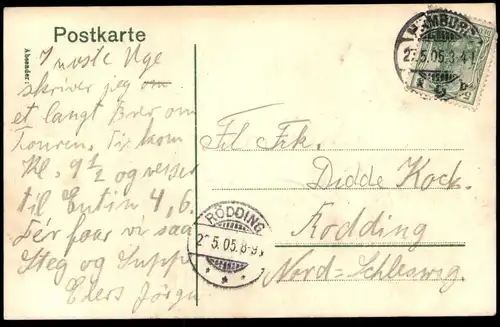 Postkarte
Absender:
HAMBURG
2?.5.05.3-4
I næste Uge
skriver jeg om
et langt Brev om
Touren. Vi kom
Kl. 9½ og rejser
til Eutin 4,6.
Før faar vi saa
Steg og Suppe
Eders Jörgen
RÖDDING
2?.5.05.8-9
Frl. Frk.
Didde Kock.
Rödding
Nord-Schleswig.